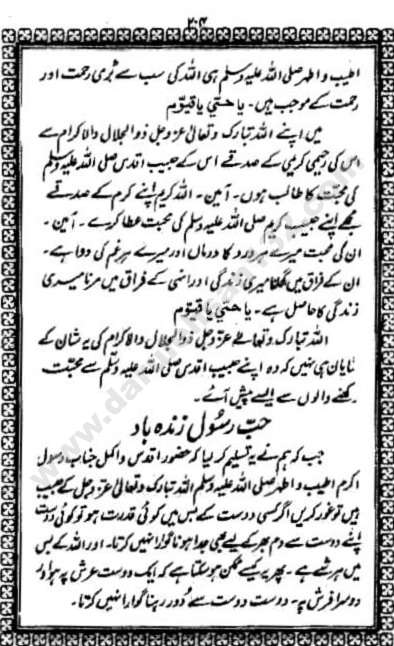 ۲۰۴
اطیب و اطہر صلی اللہ علیہ وسلم ہی اللہ کی سب سے بڑی رحمت اور
رحمت کے موجب ہیں۔ یا حتي یا قیّوم
میں اپنے اللہ تبارک و تعالیٰ عزوجل ذوالجلال والاکرام سے
اس کی رحیمی کریمی کے صدقے اس کے حبیب اقدس صلی اللہ علیہ وسلم
کی محبت کا طالب ہوں۔ آمین۔ اللہ کریم اپنے کرم کے صدقے
مجھے اپنے حبیب کریم صلی اللہ علیہ وسلم کی محبت عطا کرے۔ آمین۔
ان کی محبت میرے ہر درد کا درماں اور میرے ہر غم کی دوا ہے۔
ان کے فراق میں گھلنا میری زندگی اور انہی کے فراق میں مرنا میری
زندگی کا حاصل ہے۔ یا حتي یا قیوّم
اللہ تبارک و تعالےٰ عزوجل ذوالجلال والاکرام کی یہ شان کے
شایان ہی نہیں کہ وہ اپنے حبیب اقدس صلی اللہ علیہ وسلّم سے محبت
رکھنے والوں سے ایسے پیش آئے۔
حبّ رسُول زندہ باد
جب کہ ہم نے یہ تسلیم کر لیا کہ حضور اقدس و اکمل جناب رسول
اکرم اطیب و اطہر صلی اللہ علیہ وسلم اللہ تبارک و تعالیٰ عزوجل کے حبیب
ہیں تو غور کریں اگر کسی دوست کے بس میں کوئی قدرت ہو تو کوئی دوست
اپنے دوست سے دم بھر کے لیے بھی جدا ہونا گوارا نہیں کرتا۔ اور اللہ کے بس
میں ہر شے ہے۔ پھر یہ کیسے ممکن ہو سکتا ہے کہ ایک دوست عرش پہ ہو اور
دوسرا فرش پہ۔ دوست دوست سے دُور رہنا گوارا نہیں کرتا۔